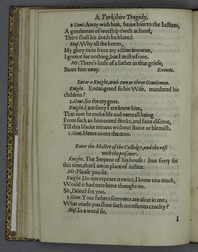 A Yorkshire Tragedy.
2 Gent. Away with him, beare him to the Iustices,
A gentleman of worship dwels at hand,
There shall his deeds be blazd.
Hus. Why all the better,
My glory tis to haue my
I grieue for nothing, but I mist of one.
Mr. There's little of a father in that griefe,
Beare him away. Exeunt.
Enter a Knight, with two or three Gentlemen.
Knight. Endangered so his Wife, murdered his
children?
1. Gent. So the cry goes.
Knight. I am sorry I ere knew him,
That euer he tooke life and naturall being
From such an honoured stocke, and faire discent,
Till this blacke minute without staine or blemish.
1. Gent. Heere come the men.
Enter the Master of the Colledge, and the rest
with the prisoner.
Knight. The Serpent of his house: Ime sorry for
this time, that I am in place of iustice.
Mr. Please you sir.
Knight Do not repeate it twice, I know too much,
Would it had nere bene thought on.
Sir, I bleed for you.
1. Gent. Your fathers sorrowes are aliue in me:
What made you shew such monstrous cruelty?
Hus. In a word sir,
I